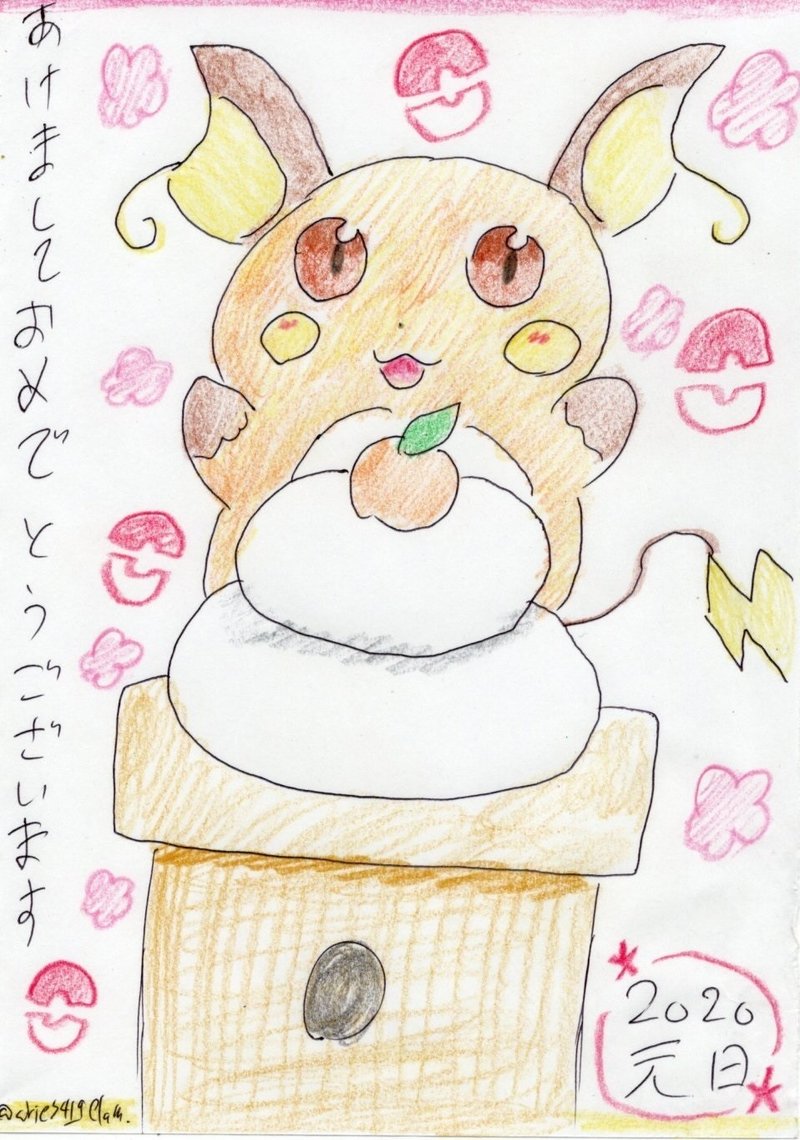 あけましておめでとうございます
2020
元日